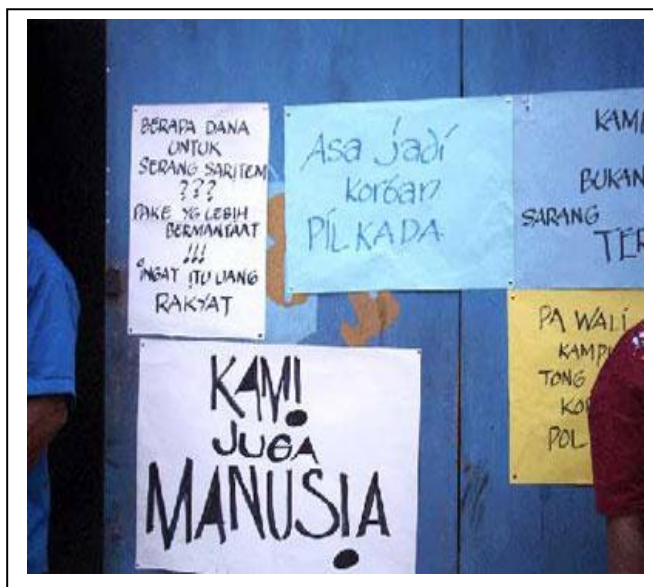 BERAPA DANA
UNTUK
SERANG SARITEM
???
PAKE YG LEBIH
BERMANFAAT
!!!
INGAT ITU UANG
RAKYAT
Asa jadi
korban
PILKADA
KAMI
BUKAN
SARANG
TER
PA WALI
KAMPU
TONG
KO
POL
KAMI
JUGA
MANUSIA